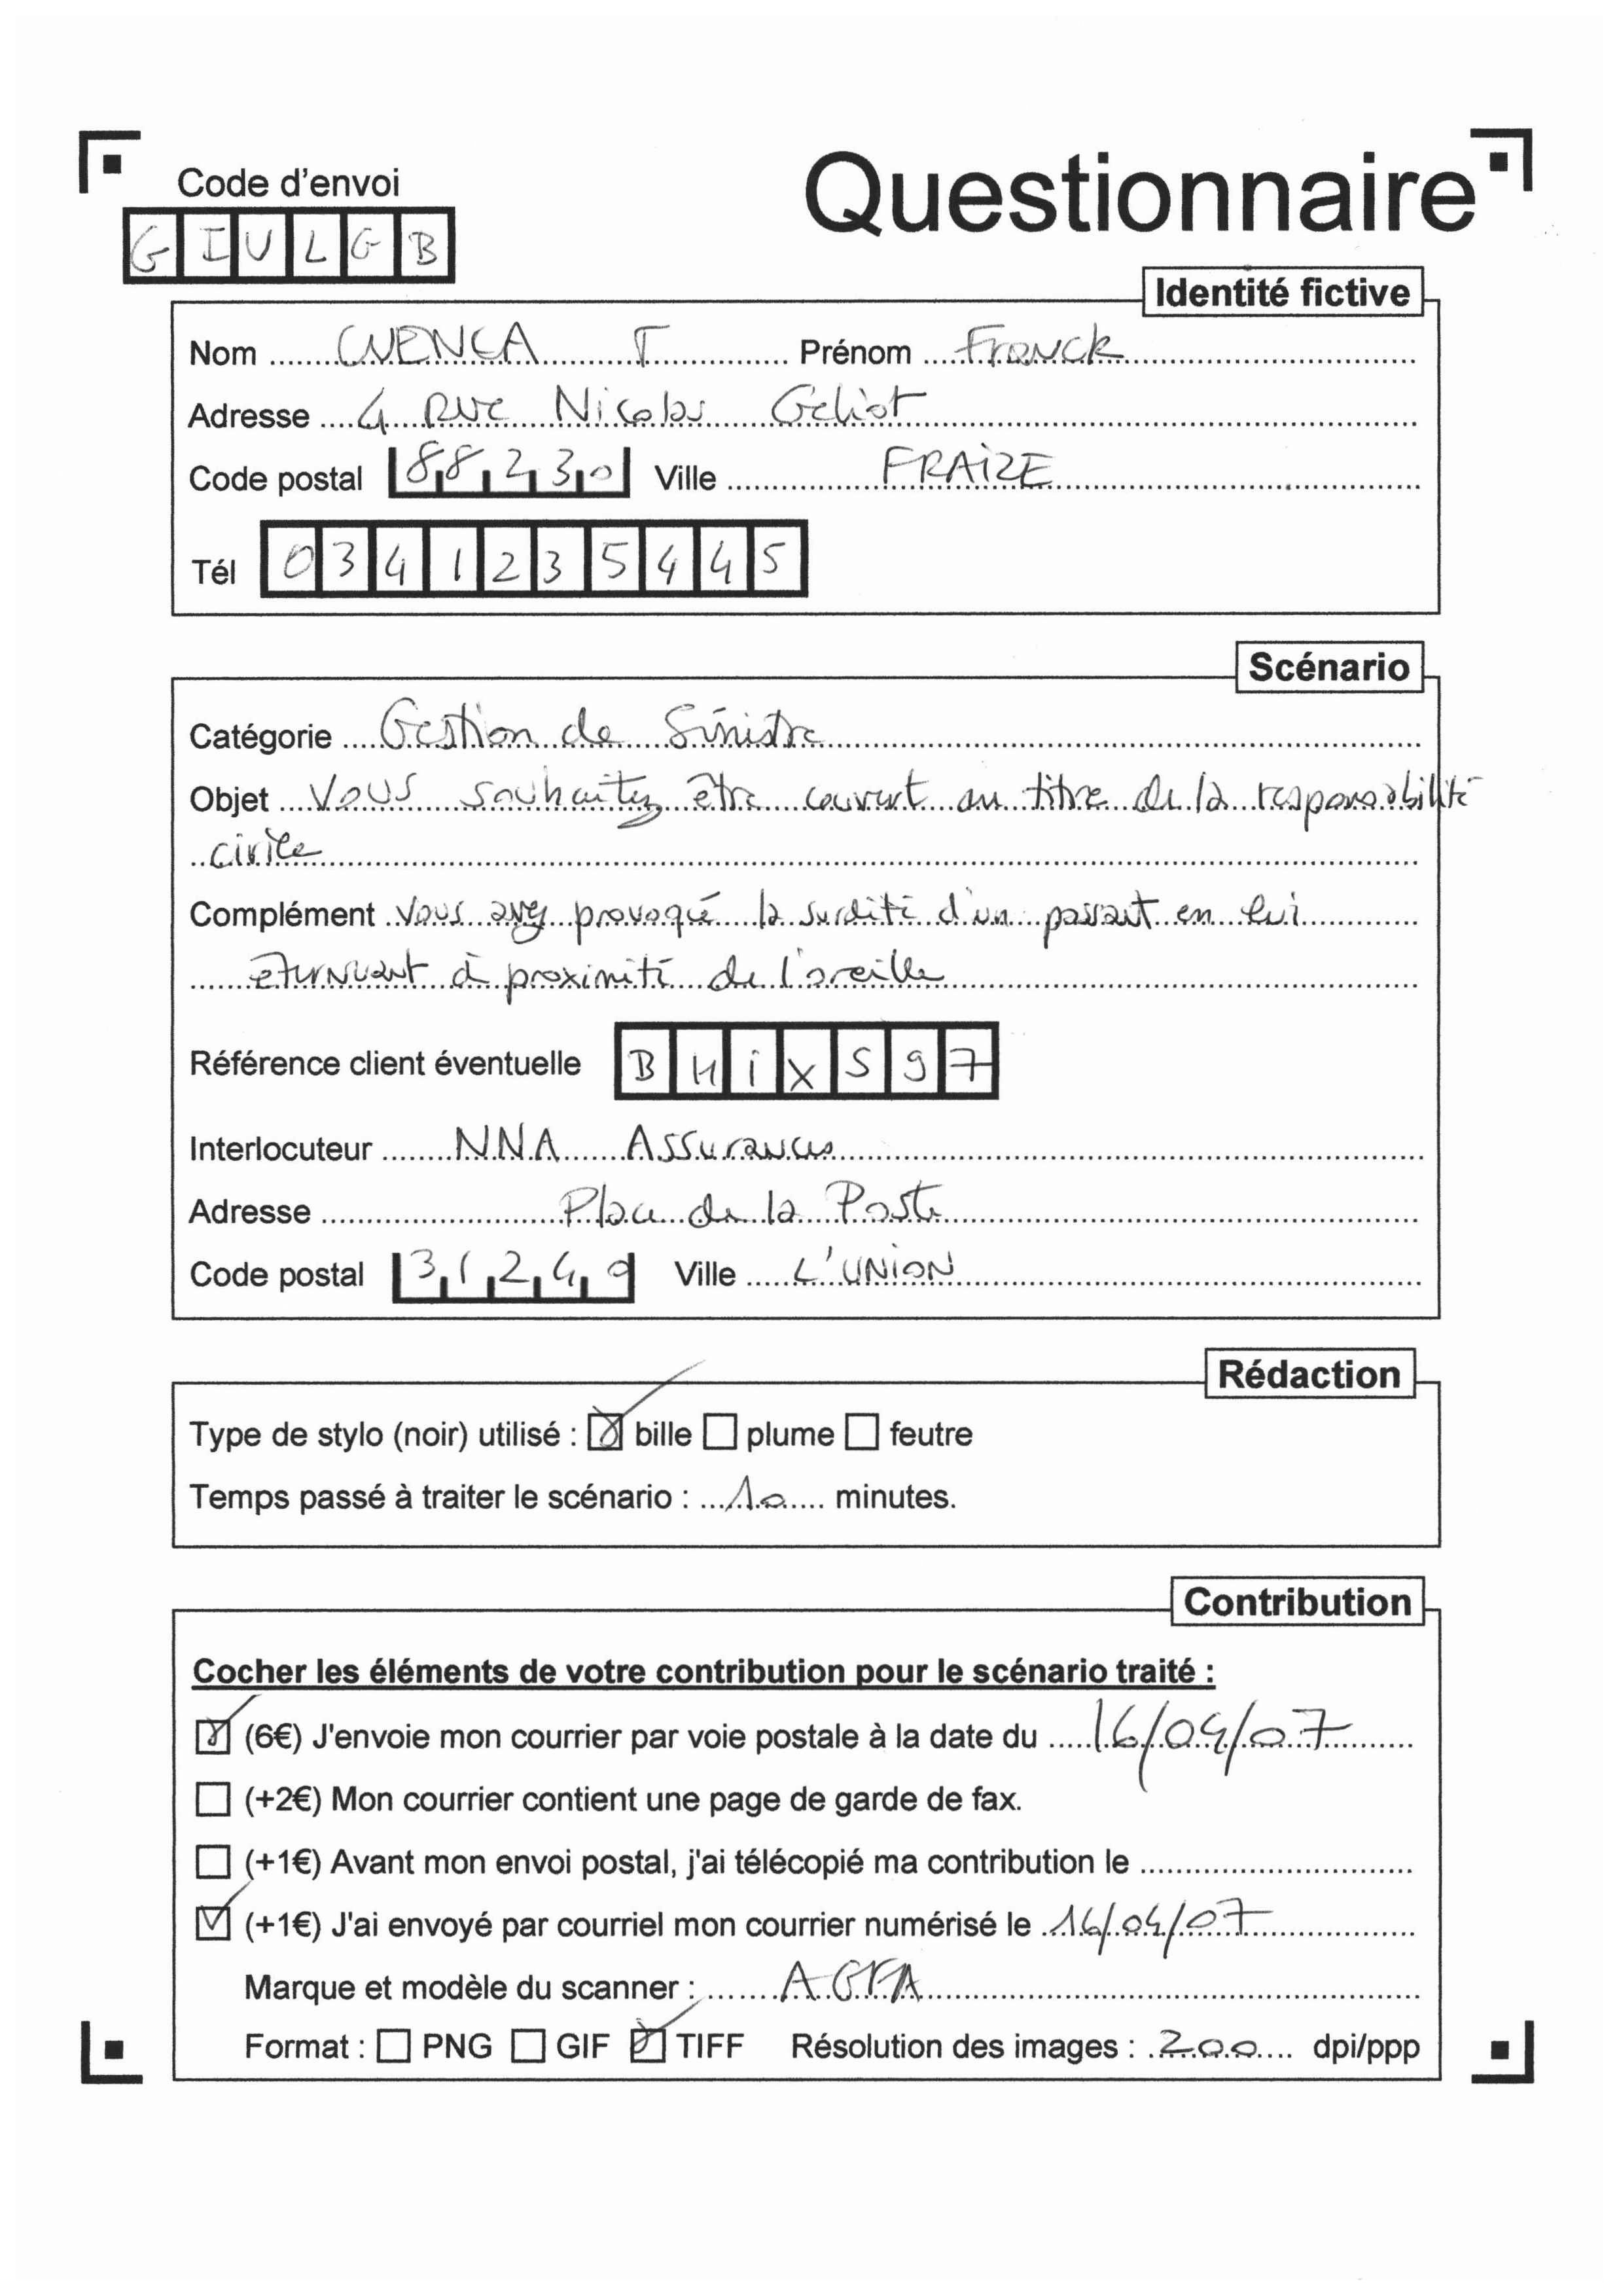 Questionnaire
Code d'envoi
GIULGB
Identité fictive
Nom CUENCA T Prénom Franck
Adresse 4 Rue Nicolas Géliot
Code postal 88230 Ville FRAIZE
Tél 0341235445
Scénario
Catégorie Gestion de Sinistre
Objet Vous souhaitez être couvert au titre de la responsabilité
civile
Complément Vous avez provoqué la surdité d'un passant en lui
éternuant à proximité de l'oreille
Référence client éventuelle BHiXS97
Interlocuteur NNA Assurances
Adresse Place de la Poste
Code postal 31240 Ville L'UNION
Rédaction
Type de stylo (noir) utilisé : bille plume feutre
Temps passé à traiter le scénario : 10 minutes.
Contribution
Cocher les éléments de votre contribution pour le scénario traité :
(6€) J'envoie mon courrier par voie postale à la date du 16/04/07
(+2€) Mon courrier contient une page de garde de fax.
(+1€) Avant mon envoi postal, j'ai télécopié ma contribution le
(+1€) J'ai envoyé par courriel mon courrier numérisé le 16/04/07
Marque et modèle du scanner : AGFA
Format : PNG GIF TIFF Résolution des images : 200 dpi/ppp